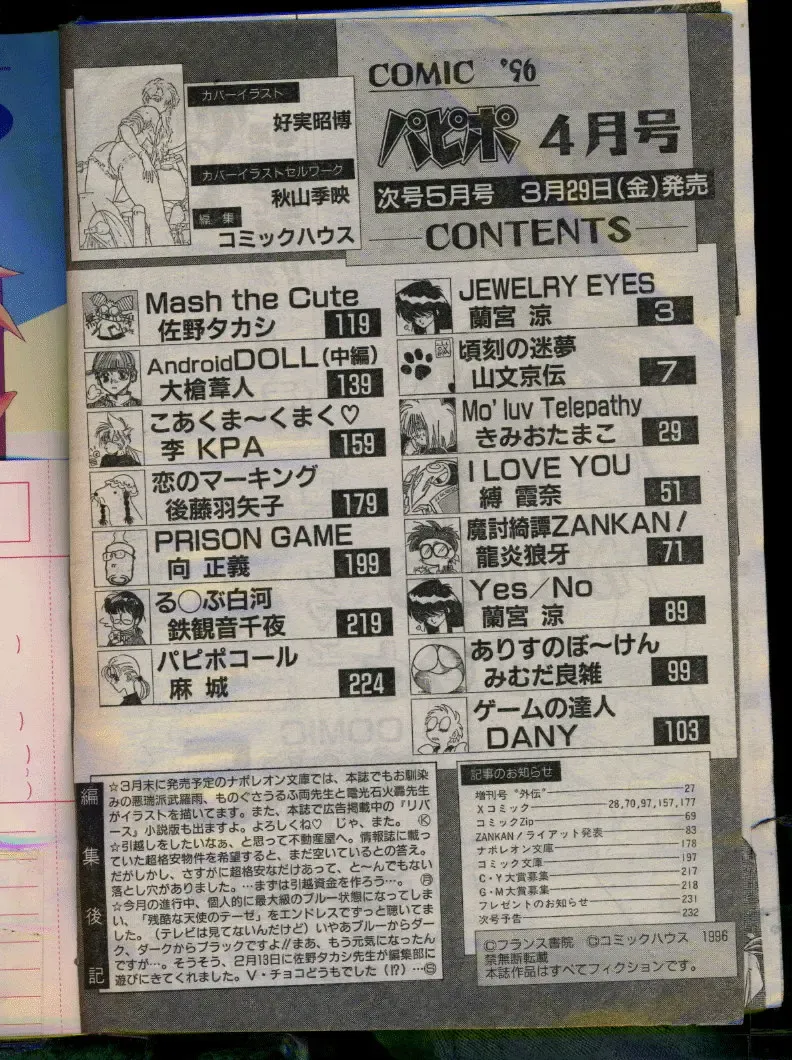 COMIC '96
パピポ 4月号
次号5月号 3月29日(金)発売
CONTENTS
カバーイラスト
好実昭博
カバーイラストセルワーク
秋山季映
編集
コミックハウス
JEWELRY EYES
蘭宮 涼 3
頃刻の迷夢
山文京伝 7
Mo' luv Telepathy
きみおたまこ 29
I LOVE YOU
縛 霞奈 51
魔討綺譚ZANKAN!
龍炎狼牙 71
Yes/No
蘭宮 涼 89
ありすのぼ〜けん
みむだ良雑 99
ゲームの達人
DANY 103
Mash the Cute
佐野タカシ 119
AndroidDOLL(中編)
大槍葦人 139
こあくま〜くまく♡
李 KPA 159
恋のマーキング
後藤羽矢子 179
PRISON GAME
向 正義 199
る◯ぶ白河
鉄観音千夜 219
パピポコール
麻 城 224
編集後記
☆3月末に発売予定のナポレオン文庫では、本誌でもお馴染
みの悪瑞派武羅雨、ものぐさうるふ両先生と電光石火轟先生
がイラストを描いてます。また、本誌で広告掲載中の『リバ
ース』小説版も出ますよ。よろしくね♡ じゃ、また。 Ⓚ
☆引越しをしたいなぁ、と思って不動産屋へ。情報誌に載っ
ていた超格安物件を希望すると、まだ空いているとの答え。
だがしかし、さすがに超格安なだけあって、と〜んでもない
落とし穴がありました。…まずは引越資金を作ろう…。 ㊊
☆今月の進行中、個人的に最大級のブルー状態になってしま
い、「残酷な天使のテーゼ」をエンドレスでずっと聴いてま
した。(テレビは見てないんだけど)いやあブルーからダー
ク、ダークからブラックですよ//まあ、もう元気になったん
ですが…。そうそう、2月13日に佐野タカシ先生が編集部に
遊びにきてくれました。V・チョコどうもでした(!?)…Ⓢ
記事のお知らせ
増刊号“外伝” 27
Xコミック 28,70,97,157,177
コミックZip 69
ZANKAN!ライアット発表 83
ナポレオン文庫 178
コミック文庫 197
C・Y大賞募集 217
G・M大賞募集 218
プレゼントのお知らせ 231
次号予告 232
Ⓒフランス書院 Ⓒコミックハウス 1996
禁無断転載
本誌作品はすべてフィクションです。